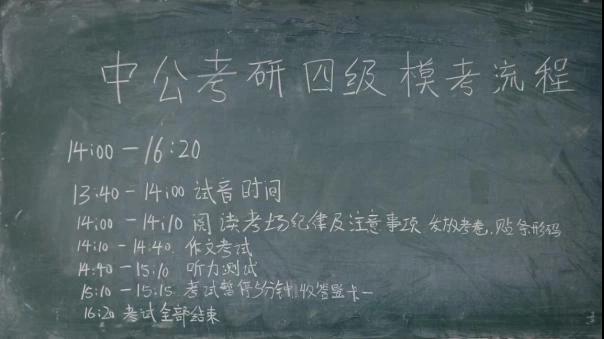 中公考研四级模考流程
14:00-16:20
13:40-14:00 试音时间
14:00-14:10 阅读考场纪律及注意事项、发放考卷,贴条形码
14:10-14:40 作文考试
14:40-15:10 听力测试
15:10-15:15 考试暂停5分钟,收答题卡一
16:20 考试全部结束